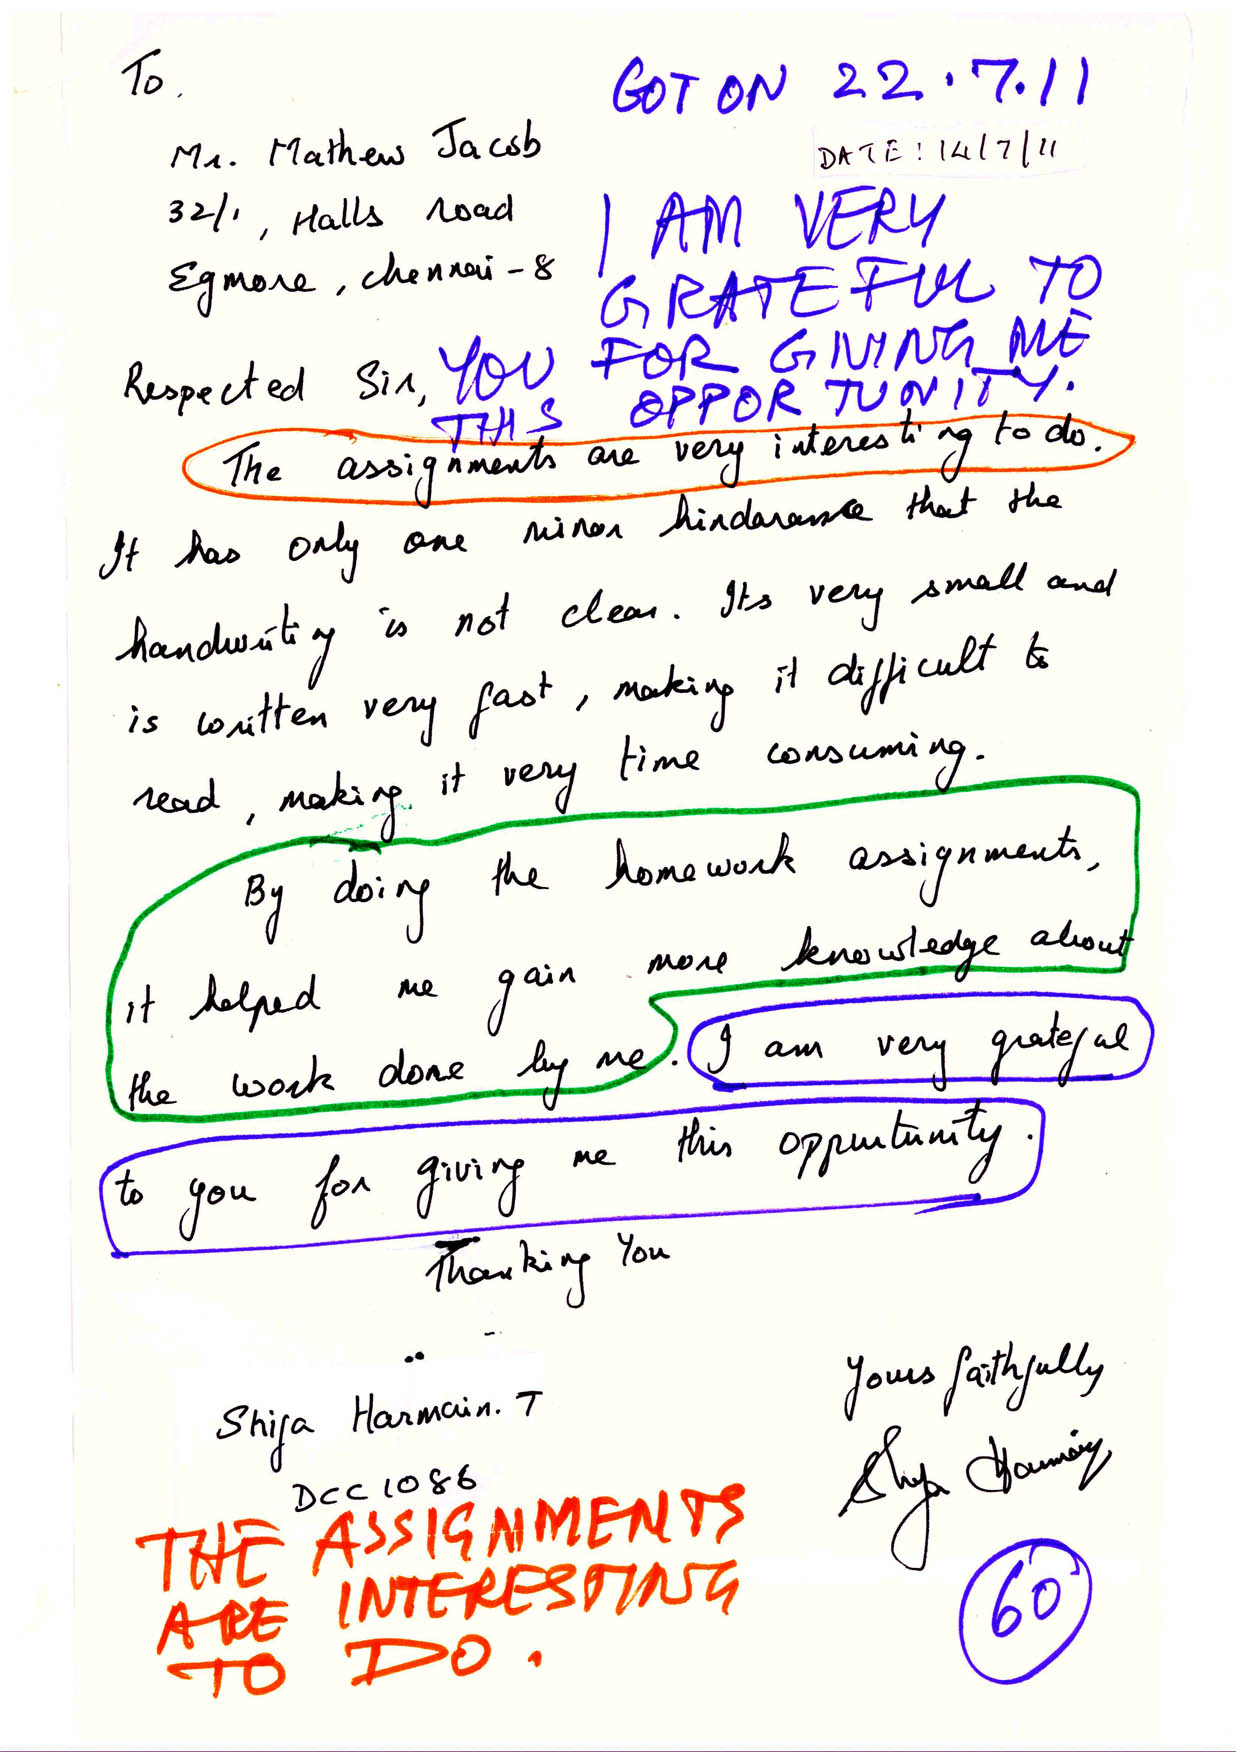 To,
GOT ON 22.7.11
DATE: 14/7/11
Mr. Mathew Jacob
32/1, Halls road
Egmore, chennai-8
I AM VERY
GRATEFUL TO
YOU FOR GIVING ME
THIS OPPORTUNITY.
Respected Sir,
The assignments are very interesting to do.
It has only one minor hindarance that the
handwriting is not clear. Its very small and
is written very fast, making it difficult to
read, making it very time consuming.
By doing the homework assignments,
it helped me gain more knowledge about
the work done by me. I am very grateful
to you for giving me this oppurtunity.
Thanking You
Yours faithfully
Shifa Harmain. T
DCC 1086
THE ASSIGNMENTS
ARE INTERESTING
TO DO.
60